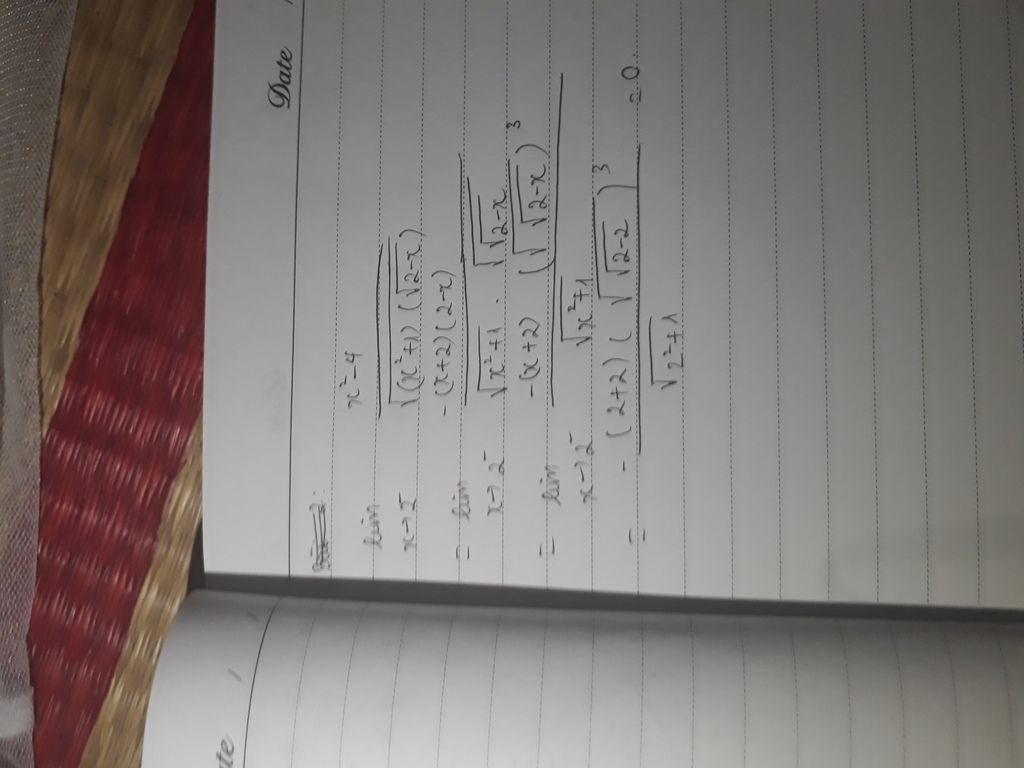 Date
lim x→2⁻ x²-4 / √((x²+1)(√(2-x)))
= lim x→2⁻ -(x+2)(2-x) / √(x²+1) . √(√(2-x))
= lim x→2⁻ -(x+2) (√(√(2-x)))³ / √(x²+1)
= -(2+2)(√(√(2-2)))³ / √(2²+1) = 0.